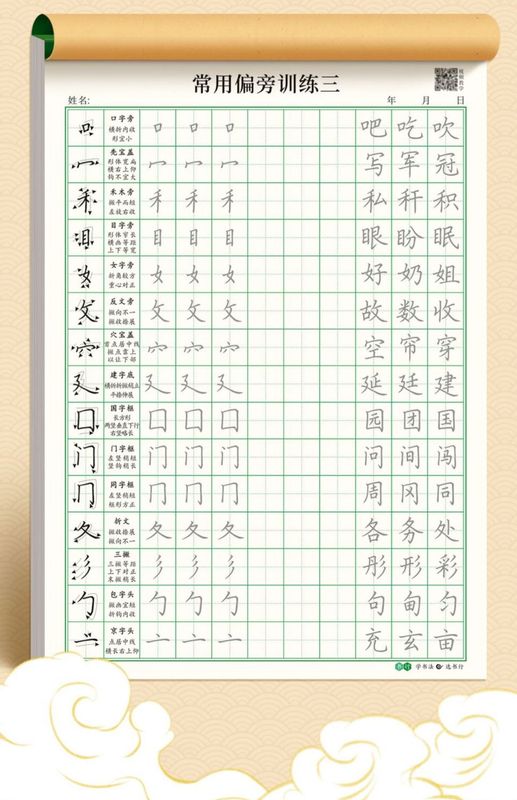 常用偏旁训练三
姓名: 年 月 日
口字旁
横折内收
形宜小
口 口 口 吧 吃 吹
秃宝盖
形体宽扁
横右上仰
钩不宜大
冖 冖 冖 写 军 冠
禾木旁
撇平而短
左放右收
禾 禾 禾 私 秆 积
目字旁
形体窄长
横画等距
上下等宽
目 目 目 眼 盼 眠
女字旁
折角较方
重心对正
女 女 女 好 奶 姐
反文旁
撇向不一
撇收捺展
攵 攵 攵 故 数 收
穴宝盖
首点居中线
撇点靠上
以让下部
穴 穴 穴 空 帘 穿
建字底
横折折撇线立
平捺伸展
廴 廴 廴 延 廷 建
国字框
长方形
两竖垂直下行
右竖略长
囗 囗 囗 园 团 国
门字框
左竖稍短
竖钩稍长
门 门 门 问 间 闯
同字框
左竖稍短
框形方正
冂 冂 冂 周 冈 同
折文
撇收捺展
撇向不一
夂 夂 夂 各 务 处
三撇
三撇等距
上下对正
末撇稍长
彡 彡 彡 彤 形 彩
包字头
撇画宜短
折钩内收
勹 勹 勹 句 甸 匀
京字头
点居中线
横长右上仰
亠 亠 亠 充 玄 亩
学书法 选书行